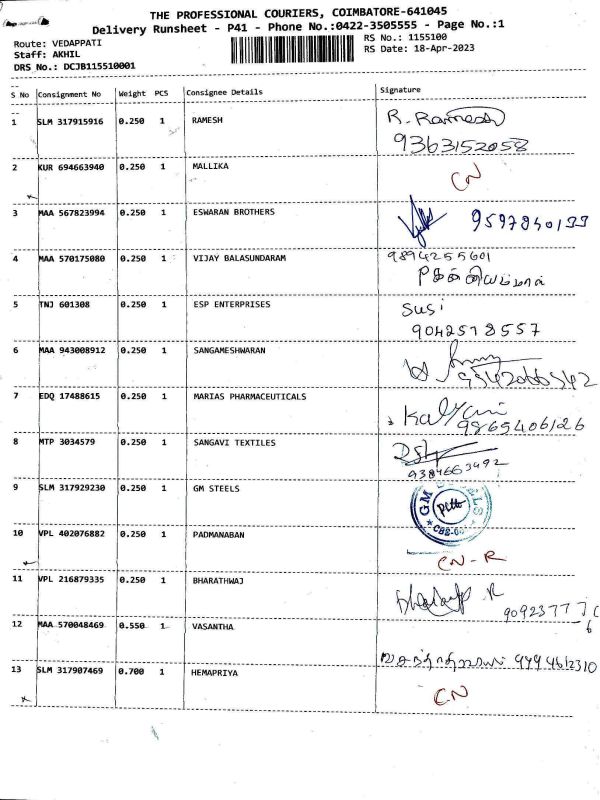 THE PROFESSIONAL COURIERS, COIMBATORE-641045
Delivery Runsheet - P41 - Phone No.:0422-3505555 - Page No.:1
Route: VEDAPPATI
Staff: AKHIL
DRS No.: DCJB115510001
RS No.: 1155100
RS Date: 18-Apr-2023
S No Consignment No Weight PCS Consignee Details Signature
1 SLM 317915916 0.250 1 RAMESH R. Ramesh
9363152058
2 KUR 694663940 0.250 1 MALLIKA CN
3 MAA 567823994 0.250 1 ESWARAN BROTHERS 9597840133
4 MAA 570175080 0.250 1 VIJAY BALASUNDARAM 9894255601
5 TNJ 601308 0.250 1 ESP ENTERPRISES Susi
9042518557
6 MAA 943008912 0.250 1 SANGAMESHWARAN
7 EDQ 17488615 0.250 1 MARIAS PHARMACEUTICALS Kalyani
9865406126
8 MTP 3034579 0.250 1 SANGAVI TEXTILES
9384663492
9 SLM 317929230 0.250 1 GM STEELS GM
10 VPL 402076882 0.250 1 PADMANABAN CN-R
11 VPL 216879335 0.250 1 BHARATHWAJ
12 MAA 570048469 0.550 1 VASANTHA
13 SLM 317907469 0.700 1 HEMAPRIYA CN